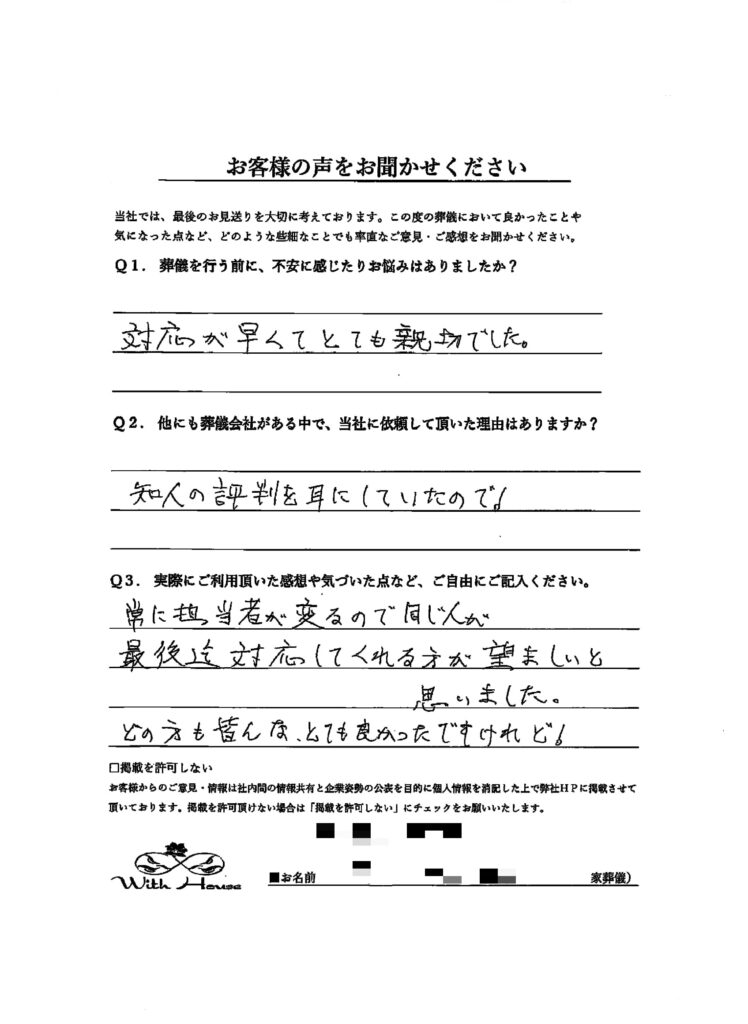 お客様の声をお聞かせください
当社では、最後のお見送りを大切に考えております。この度の葬儀において良かったことや
気になった点など、どのような些細なことでも率直なご意見・ご感想をお聞かせください。
Q1. 葬儀を行う前に、不安に感じたりお悩みはありましたか？
対応が早くてとても親切でした。
Q2. 他にも葬儀会社がある中で、当社に依頼して頂いた理由はありますか？
知人の評判を耳にしていたので!
Q3. 実際にご利用頂いた感想や気づいた点など、ご自由にご記入ください。
常に担当者が変るので同じ人が
最後迄対応してくれる方が望ましいと
思いました。
どの方も皆んな、とても良かったですけれど!
□掲載を許可しない
お客様からのご意見・情報は社内間の情報共有と企業姿勢の公表を目的に個人情報を消記した上で弊社HPに掲載させて
頂いております。掲載を許可頂けない場合は「掲載を許可しない」にチェックをお願いいたします。
With House
■お名前 家葬儀）